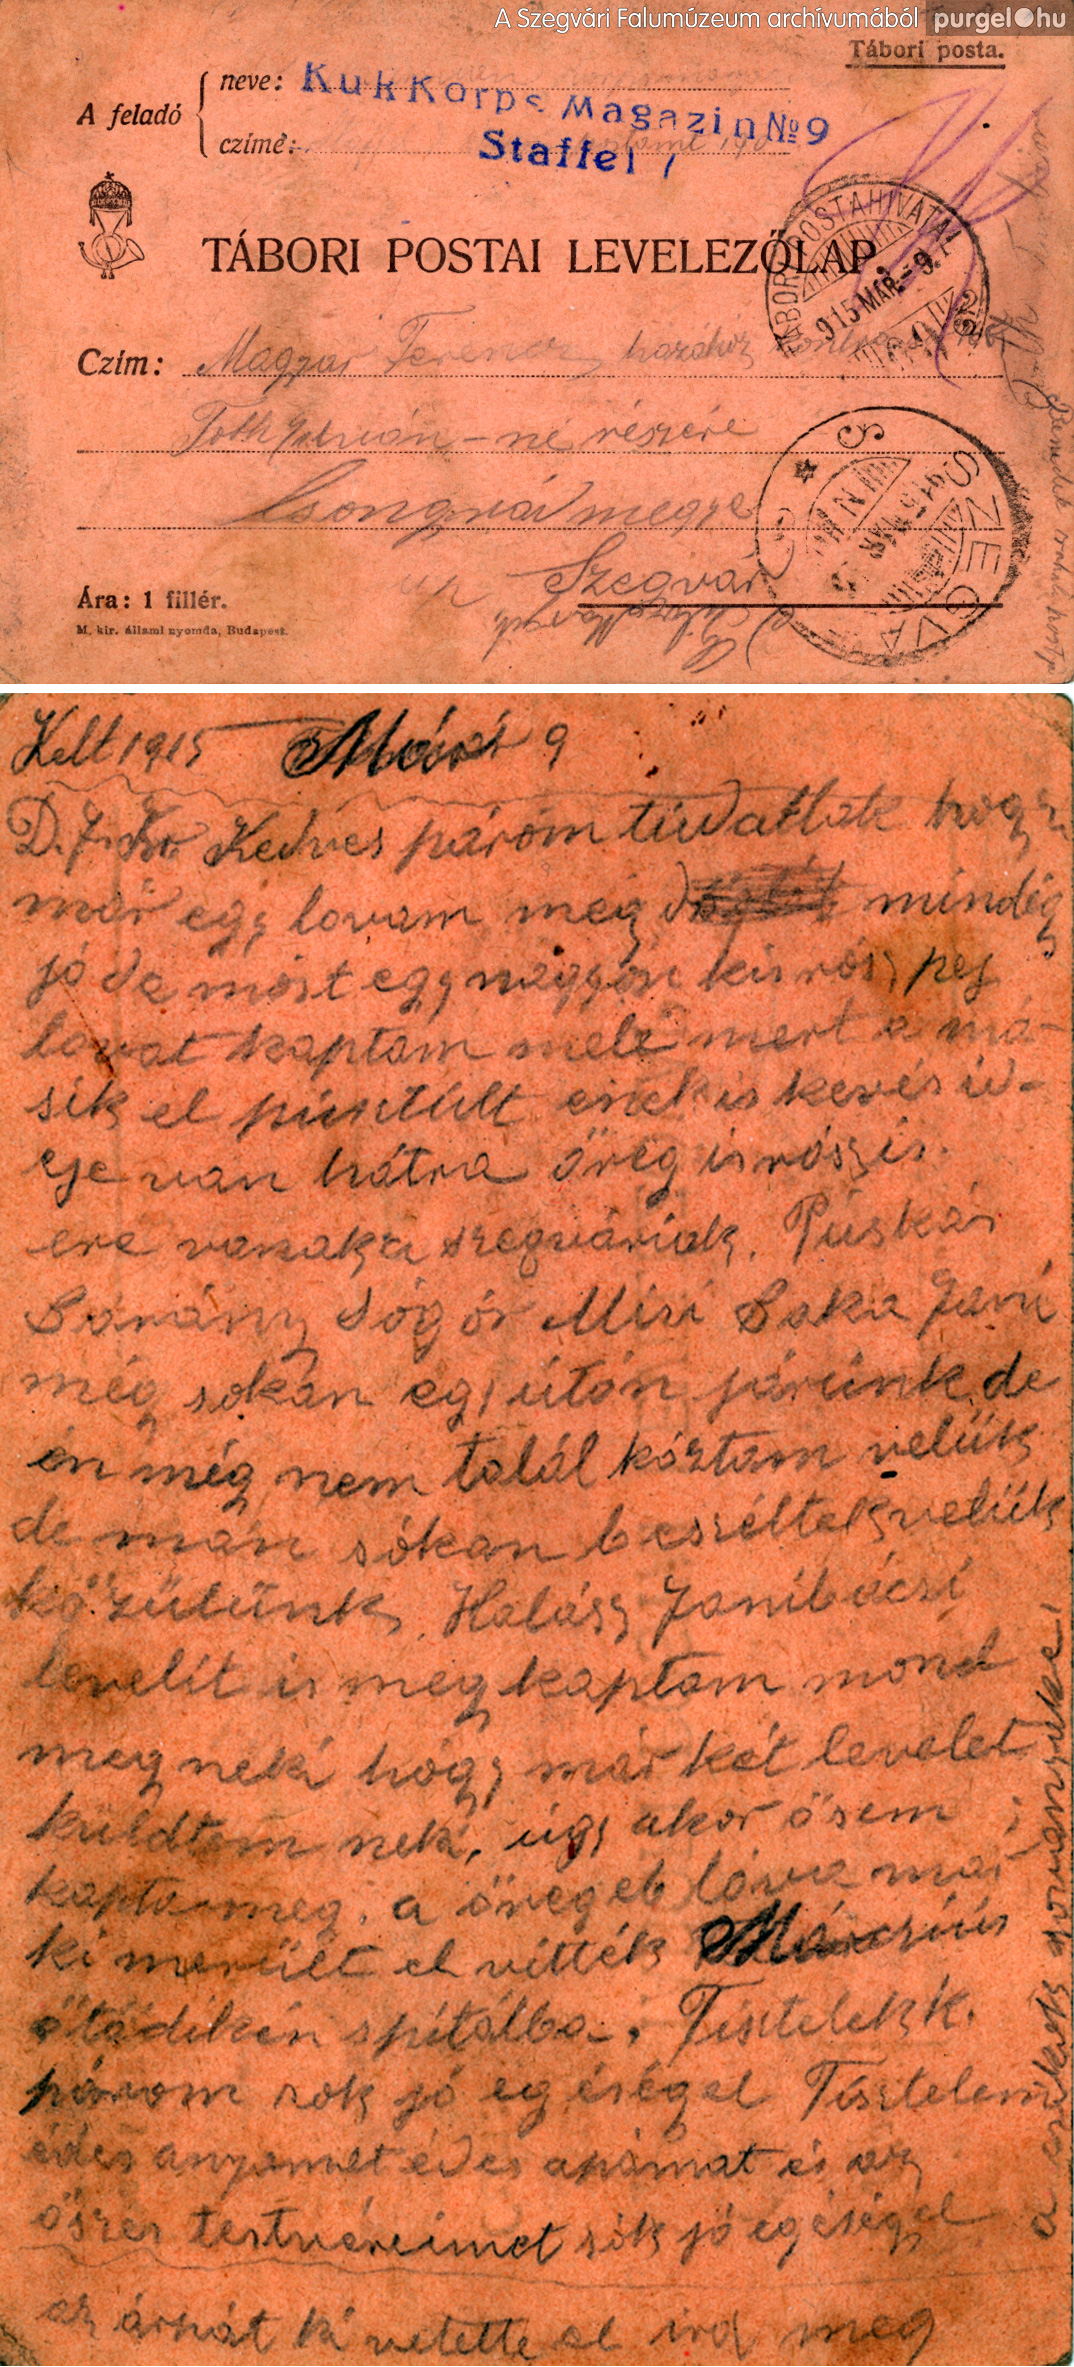 A Szegvári Falumúzeum archívumából purgel.hu
Tábori posta.
A feladó
neve:
czíme:
KukKorps Magazin № 9
Staffel 1
TÁBORI POSTAI LEVELEZŐLAP.
TÁBORI POSTAHIVATAL
915 MÁR. - 9.
Czím: Magyar Ferencz házához
Tóth -né részére
Csongrád megye
Szegvár
SZEGVÁR
Ára: 1 fillér.
M. kir. állami nyomda, Budapest.
Kelt 1915 Márci 9
Kedves párom tudatlak hogy
már egy lovam még mindég
jó de móst egy nagyón kis rósz pej
lovat kaptam melé mert a má-
sik el púsztúlt enek is kevés id-
eje van hátra öreg is rósz is.
ere vanaka szegváriak. Púskás
Bárány Sógór Misi Baka Jani
még sokan egy útón járúnk de
én még nem talál kóztam velük
de mán sókan beszéltek velük
közülünk, Halász Janibácsi
levelit is meg kaptam mond
meg neki hógy már két levelet
küldtem neki, úgy akor ősem
kapta meg. a öregeb lóva már
ki merült el vitték Márcziús
ötödikén spitálba. Tisztelek k.
párom sok jó egéségel Tisztelem
édes anyámat édes apámat és az
öszes testvéreimet sók jó egéségel
az árpát ki vetette el ird meg